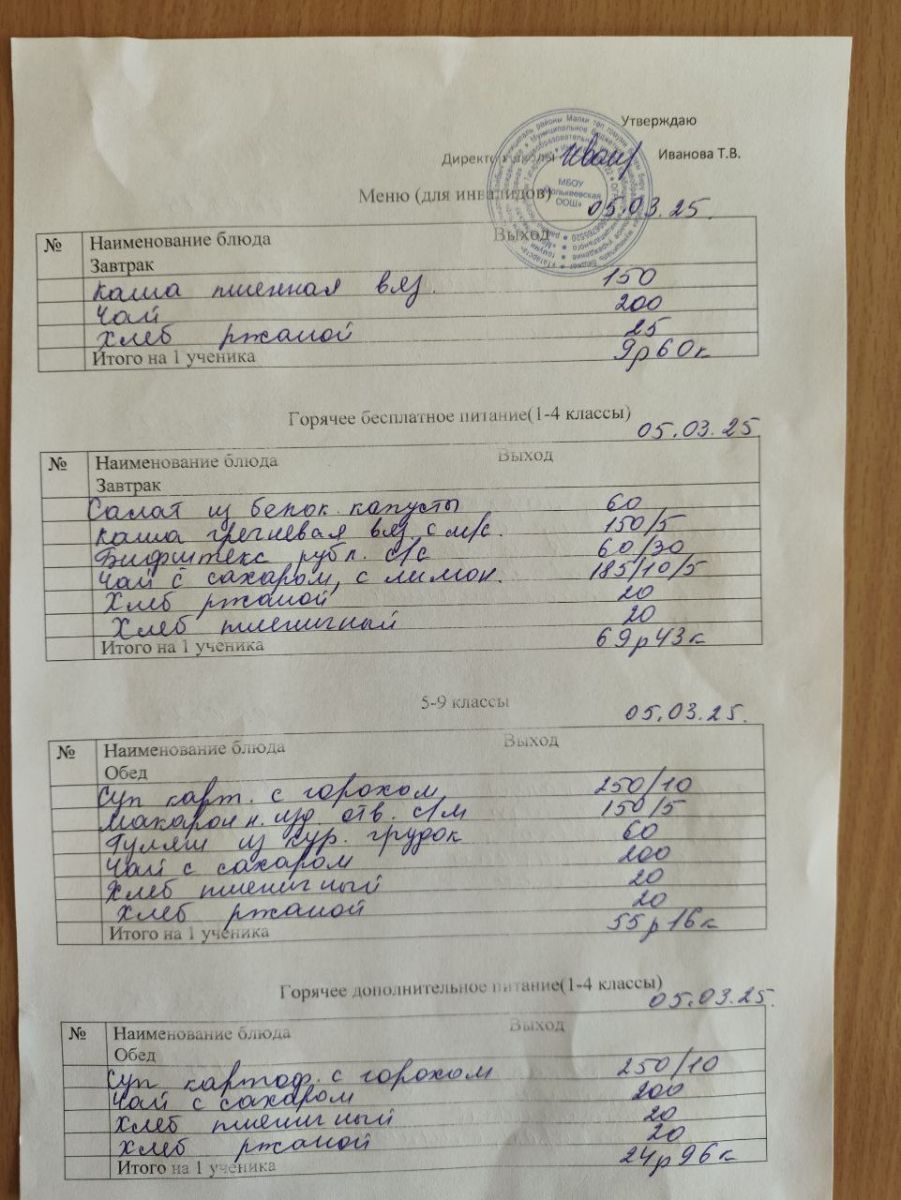 Утверждаю
Директор школы Иванова Т.В.
МБОУ
ООШ»
Меню (для инвалидов)
05.03.25.
№ Наименование блюда Выход
Завтрак
Каша пшенная вяз. 150
Чай 200
Хлеб ржаной 25
Итого на 1 ученика 9р60к
Горячее бесплатное питание(1-4 классы)
05.03.25
№ Наименование блюда Выход
Завтрак
Салат из белок. капусты 60
Каша гречневая вяз. с м/с. 150/5
Бифштекс рубл. с/с 60/30
Чай с сахаром, с лимон. 185/10/5
Хлеб ржаной 20
Хлеб пшеничный 20
Итого на 1 ученика 69р43к
5-9 классы
05.03.25.
№ Наименование блюда Выход
Обед
Суп карт. с горохом 250/10
Макарон. изд. отв. с/м 150/5
Гуляш из кур. грудок 60
Чай с сахаром 200
Хлеб пшеничный 20
Хлеб ржаной 20
Итого на 1 ученика 55р16к
Горячее дополнительное питание(1-4 классы)
05.03.25.
№ Наименование блюда Выход
Обед
Суп картоф. с горохом 250/10
Чай с сахаром 200
Хлеб пшеничный 20
Хлеб ржаной 20
Итого на 1 ученика 24р96к